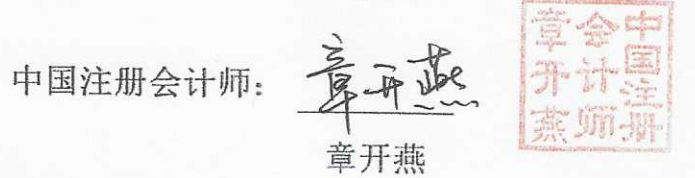 中国注册会计师：章开燕
章开燕
中国注册
会计师
章开燕